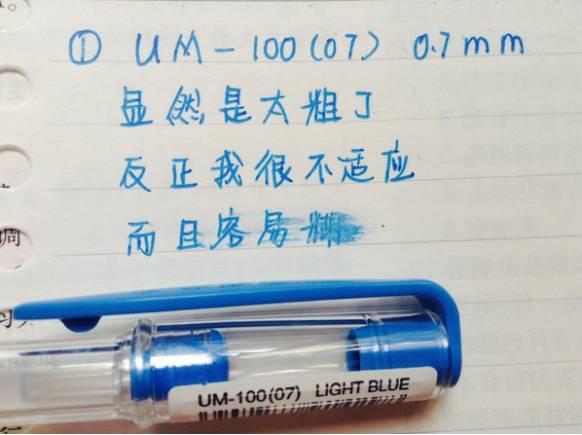 ① UM-100(07) 0.7mm
显然是太粗了
反正我很不适应
而且容易糊
调
习
UM-100(07) LIGHT BLUE
行